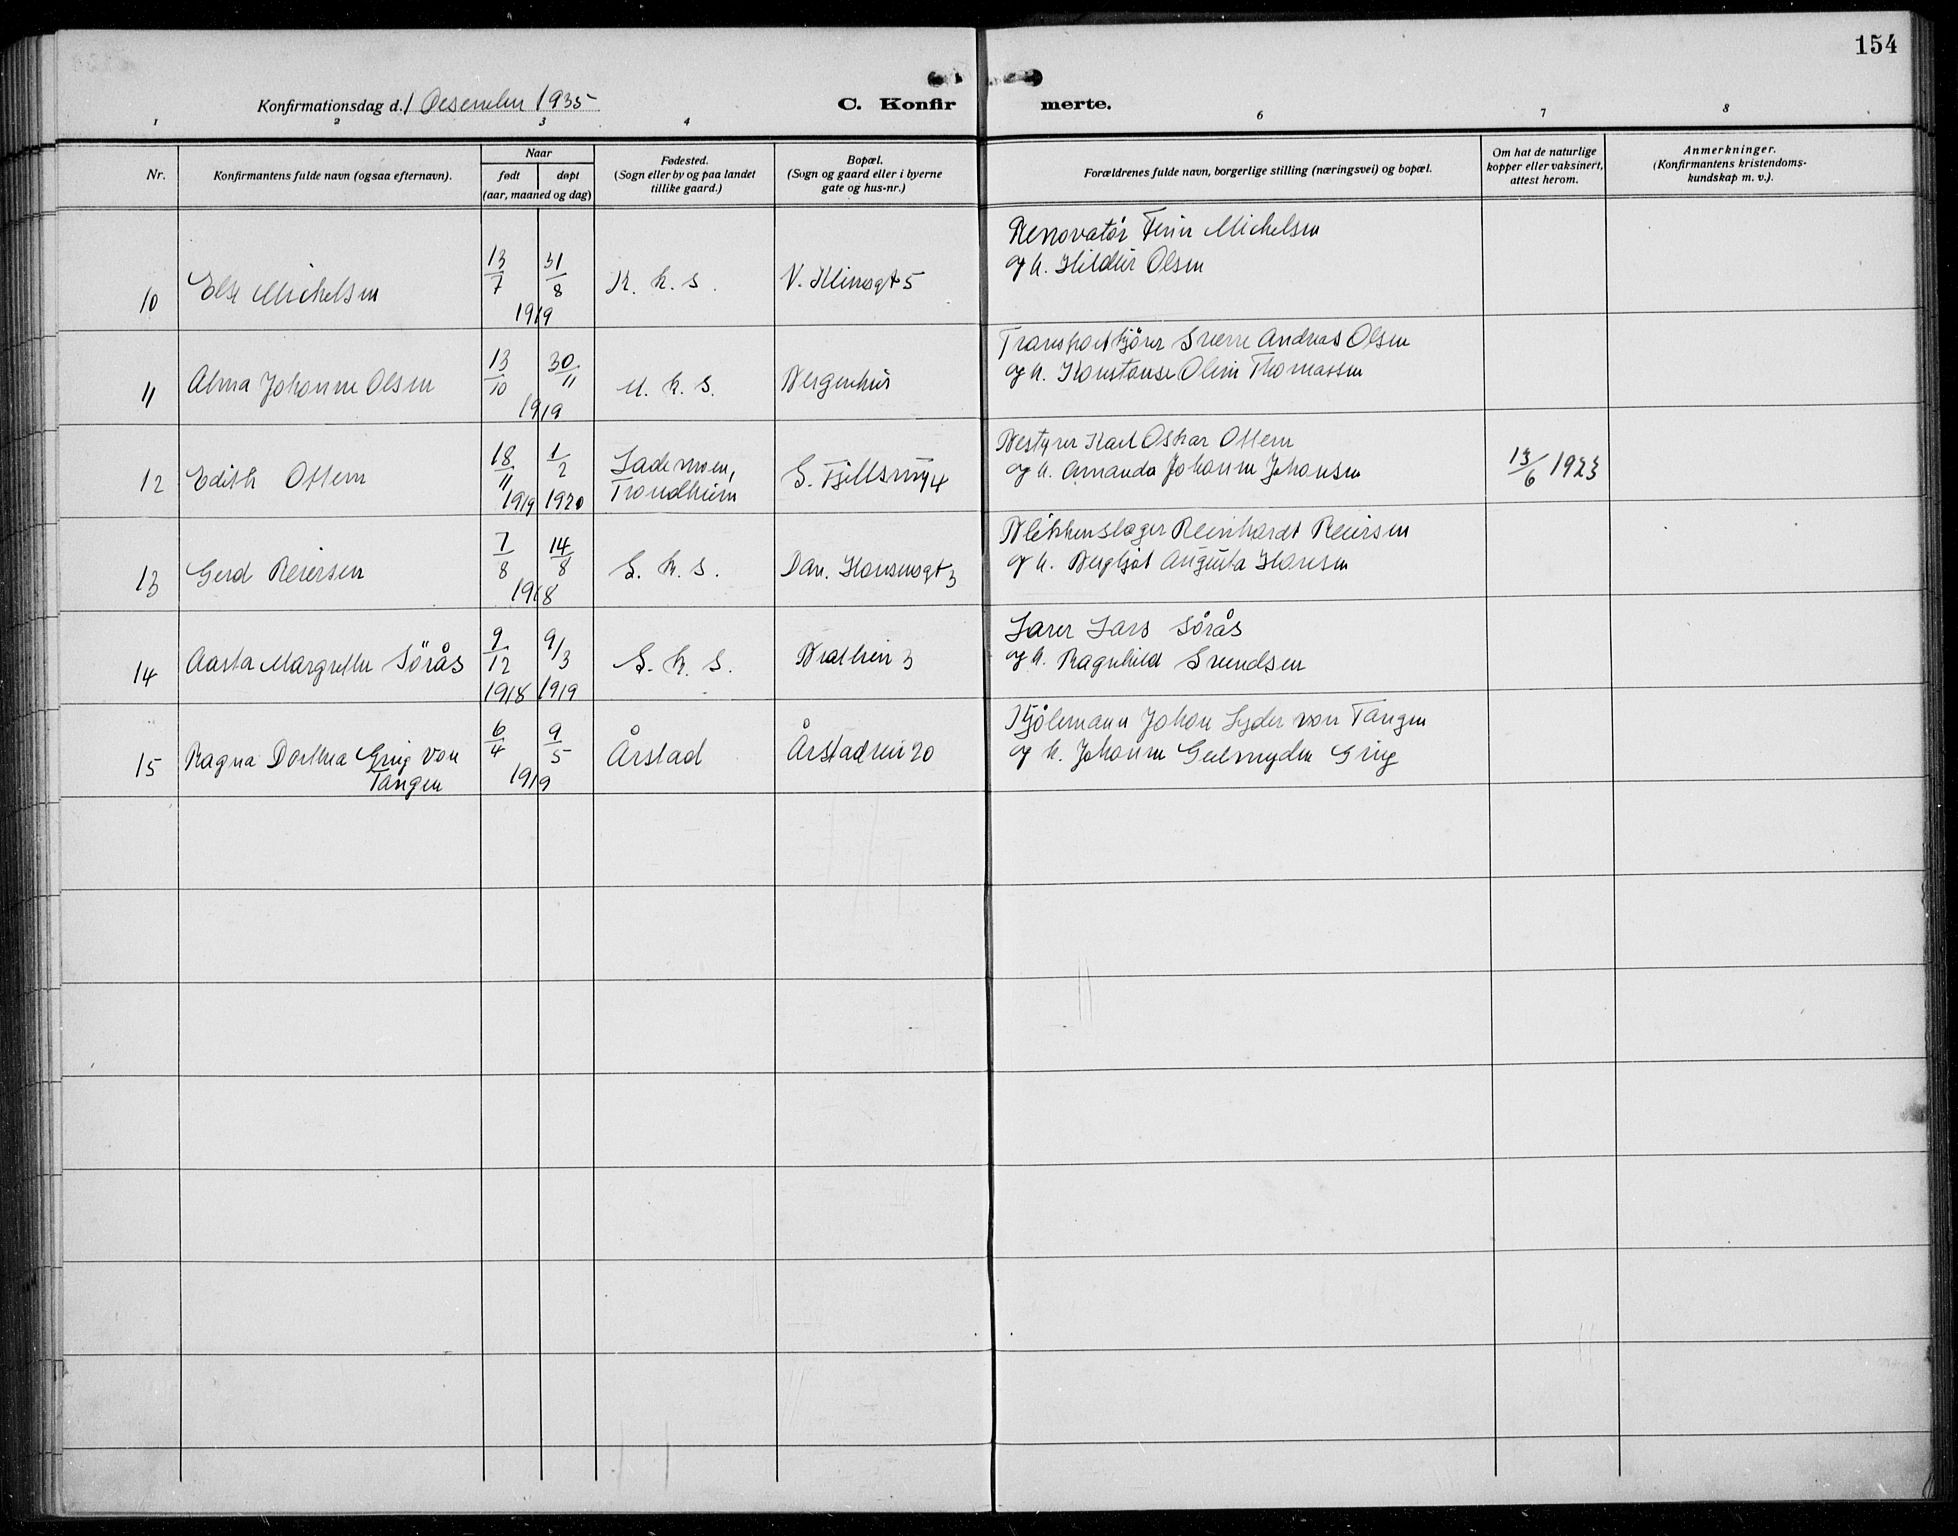 154
Konfirmationsdag d. 1 Desember 1935 C. Konfir merte.
1 2 3 4 5 6 7 8
Nr.
Konfirmantens fulde navn (ogsaa efternavn).
Naar
født døpt
(aar, maaned og dag)
Fødested.
(Sogn eller by og paa landet
tillike gaard.)
Bopæl.
(Sogn og gaard eller i byerne
gate og hus-nr.)
Forældrenes fulde navn, borgerlige stilling (næringsvei) og bopæl.
Om hat de naturlige
kopper eller vaksinert,
attest herom.
Anmerkninger.
(Konfirmantens kristendoms-
kundskap m. v.).
Renovatør Finn Michelsen
og h. Hildur Olsen
10 Else Michelsen 13/7 31/8 K. k. S. V. Klinegt 5
1919
Transportkjører Sverre Andreas Olsen
og h. Konstanse Oline Thomassen
11 Alma Johanne Olsen 13/10 30/11 M. k. S. Bergenhus
1919
Bestyrer Karl Oskar Ottem
og h. Amanda Johanne Johansen
12 Edith Ottem 18/11 1/2 Lademoen, S. 4 13/6 1923
1919 1920 Trondheim
Blikkenslager Reinhardt Reiersen
og h. Bergljot Augusta Hansen
13 Gerd Reiersen 7/8 14/8 S. k. S. Dan. Hansensgt 3
1918
Lars Sörås
og h. Ragnhild Svendsen
14 Aasta Margrethe Sörås 9/12 9/3 S. k. S. 3
1918 1919
Johan Lyder von Tangen
og h. Johanne Geelmyden Grieg
15 Ragna Dorthea Grieg von 6/4 9/5 Årstad Årstadvei 20
Tangen 1919